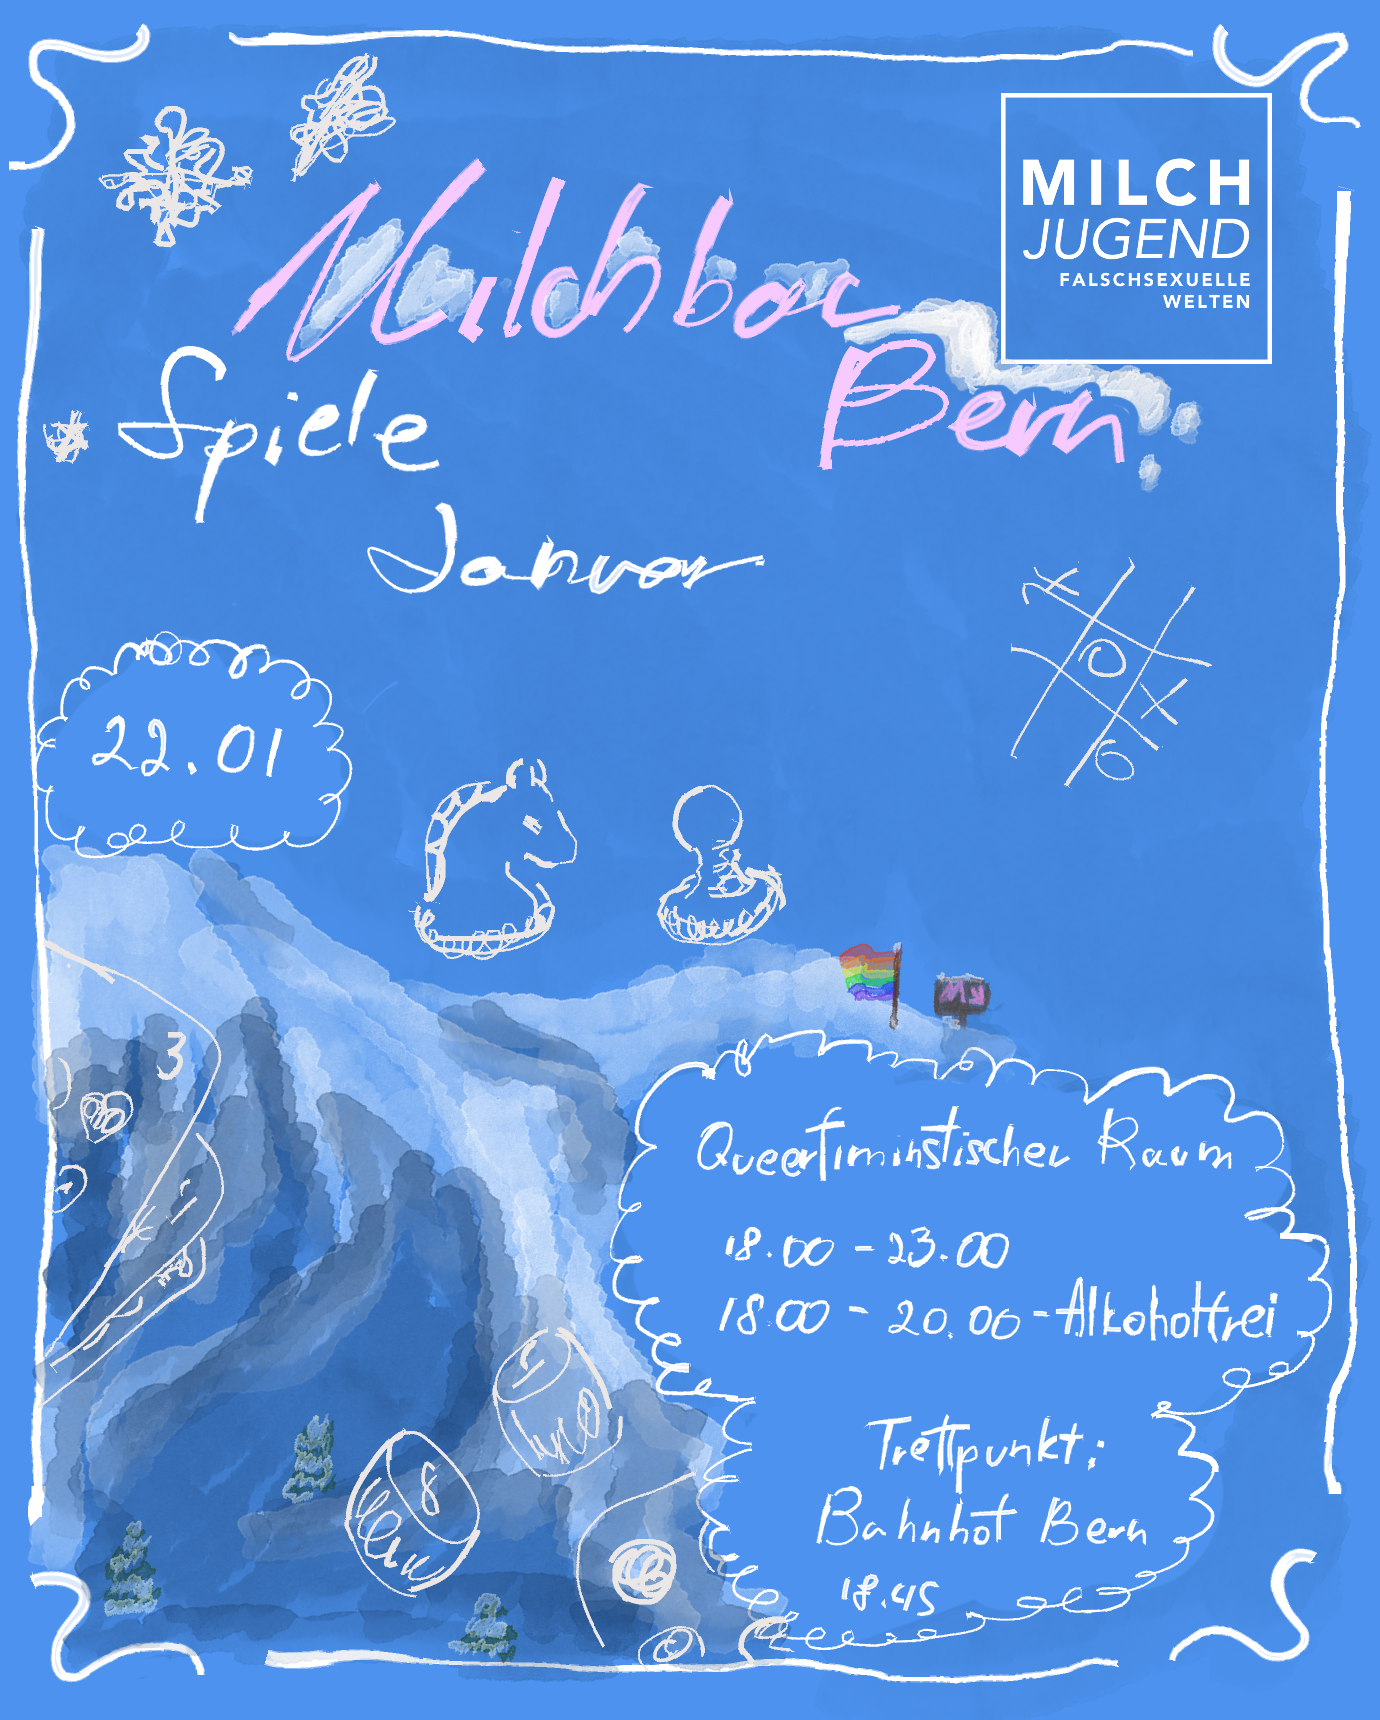 MILCH
JUGEND
FALSCHSEXUELLE
WELTEN
Milchbar
Bern
Spiele
Januar
X
O
X
O
22.01
3
MK
Queerfiministischer Raum
18.00 - 23.00
18.00 - 20.00 - Alkoholfrei
8
Treffpunkt:
Bahnhof Bern
18.45